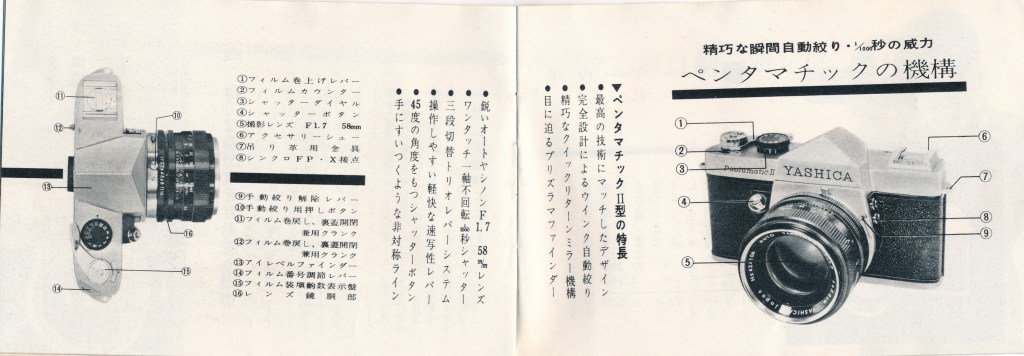 精巧な瞬間自動絞り・1/1000秒の威力
ペンタマチックの機構
▼ペンタマチックⅡ型の特長
●最高の技術にマッチしたデザイン
●完全設計によるウインク自動絞り
●精巧なクイックリターンミラー機構
●目に迫るプリズラマファインダー
①
②
③
④
⑤
⑥
⑦
⑧
⑨
Pentamatic II
YASHICA
●鋭いオートヤシノンF1.7 58m/mレンズ
●ワンタッチ一軸不回転1/1000秒シャッター
●三段切替トリオレバーシステム
●操作しやすい軽快な速写性レバー
●45度の角度をもつシャッターボタン
●手にすいつくような非対称ライン
①フィルム巻上げレバー
②フィルムカウンター
③シャッターダイヤル
④シャッターボタン
⑤撮影レンズ F1.7 58mm
⑥アクセサリーシュー
⑦吊り革用金具
⑧シンクロFP・X接点
⑨手動絞り解除レバー
⑩手動絞り用押しボタン
⑪フィルム巻戻し、裏蓋開閉
兼用クランク
⑫フィルム巻戻し、裏蓋開閉
兼用クランク
⑬アイレベルファインダー
⑭フィルム番号調節レバー
⑮フィルム装填駒数表示盤
⑯レンズ鏡胴部
⑩
⑪
⑫
⑬
⑭
⑮
⑯